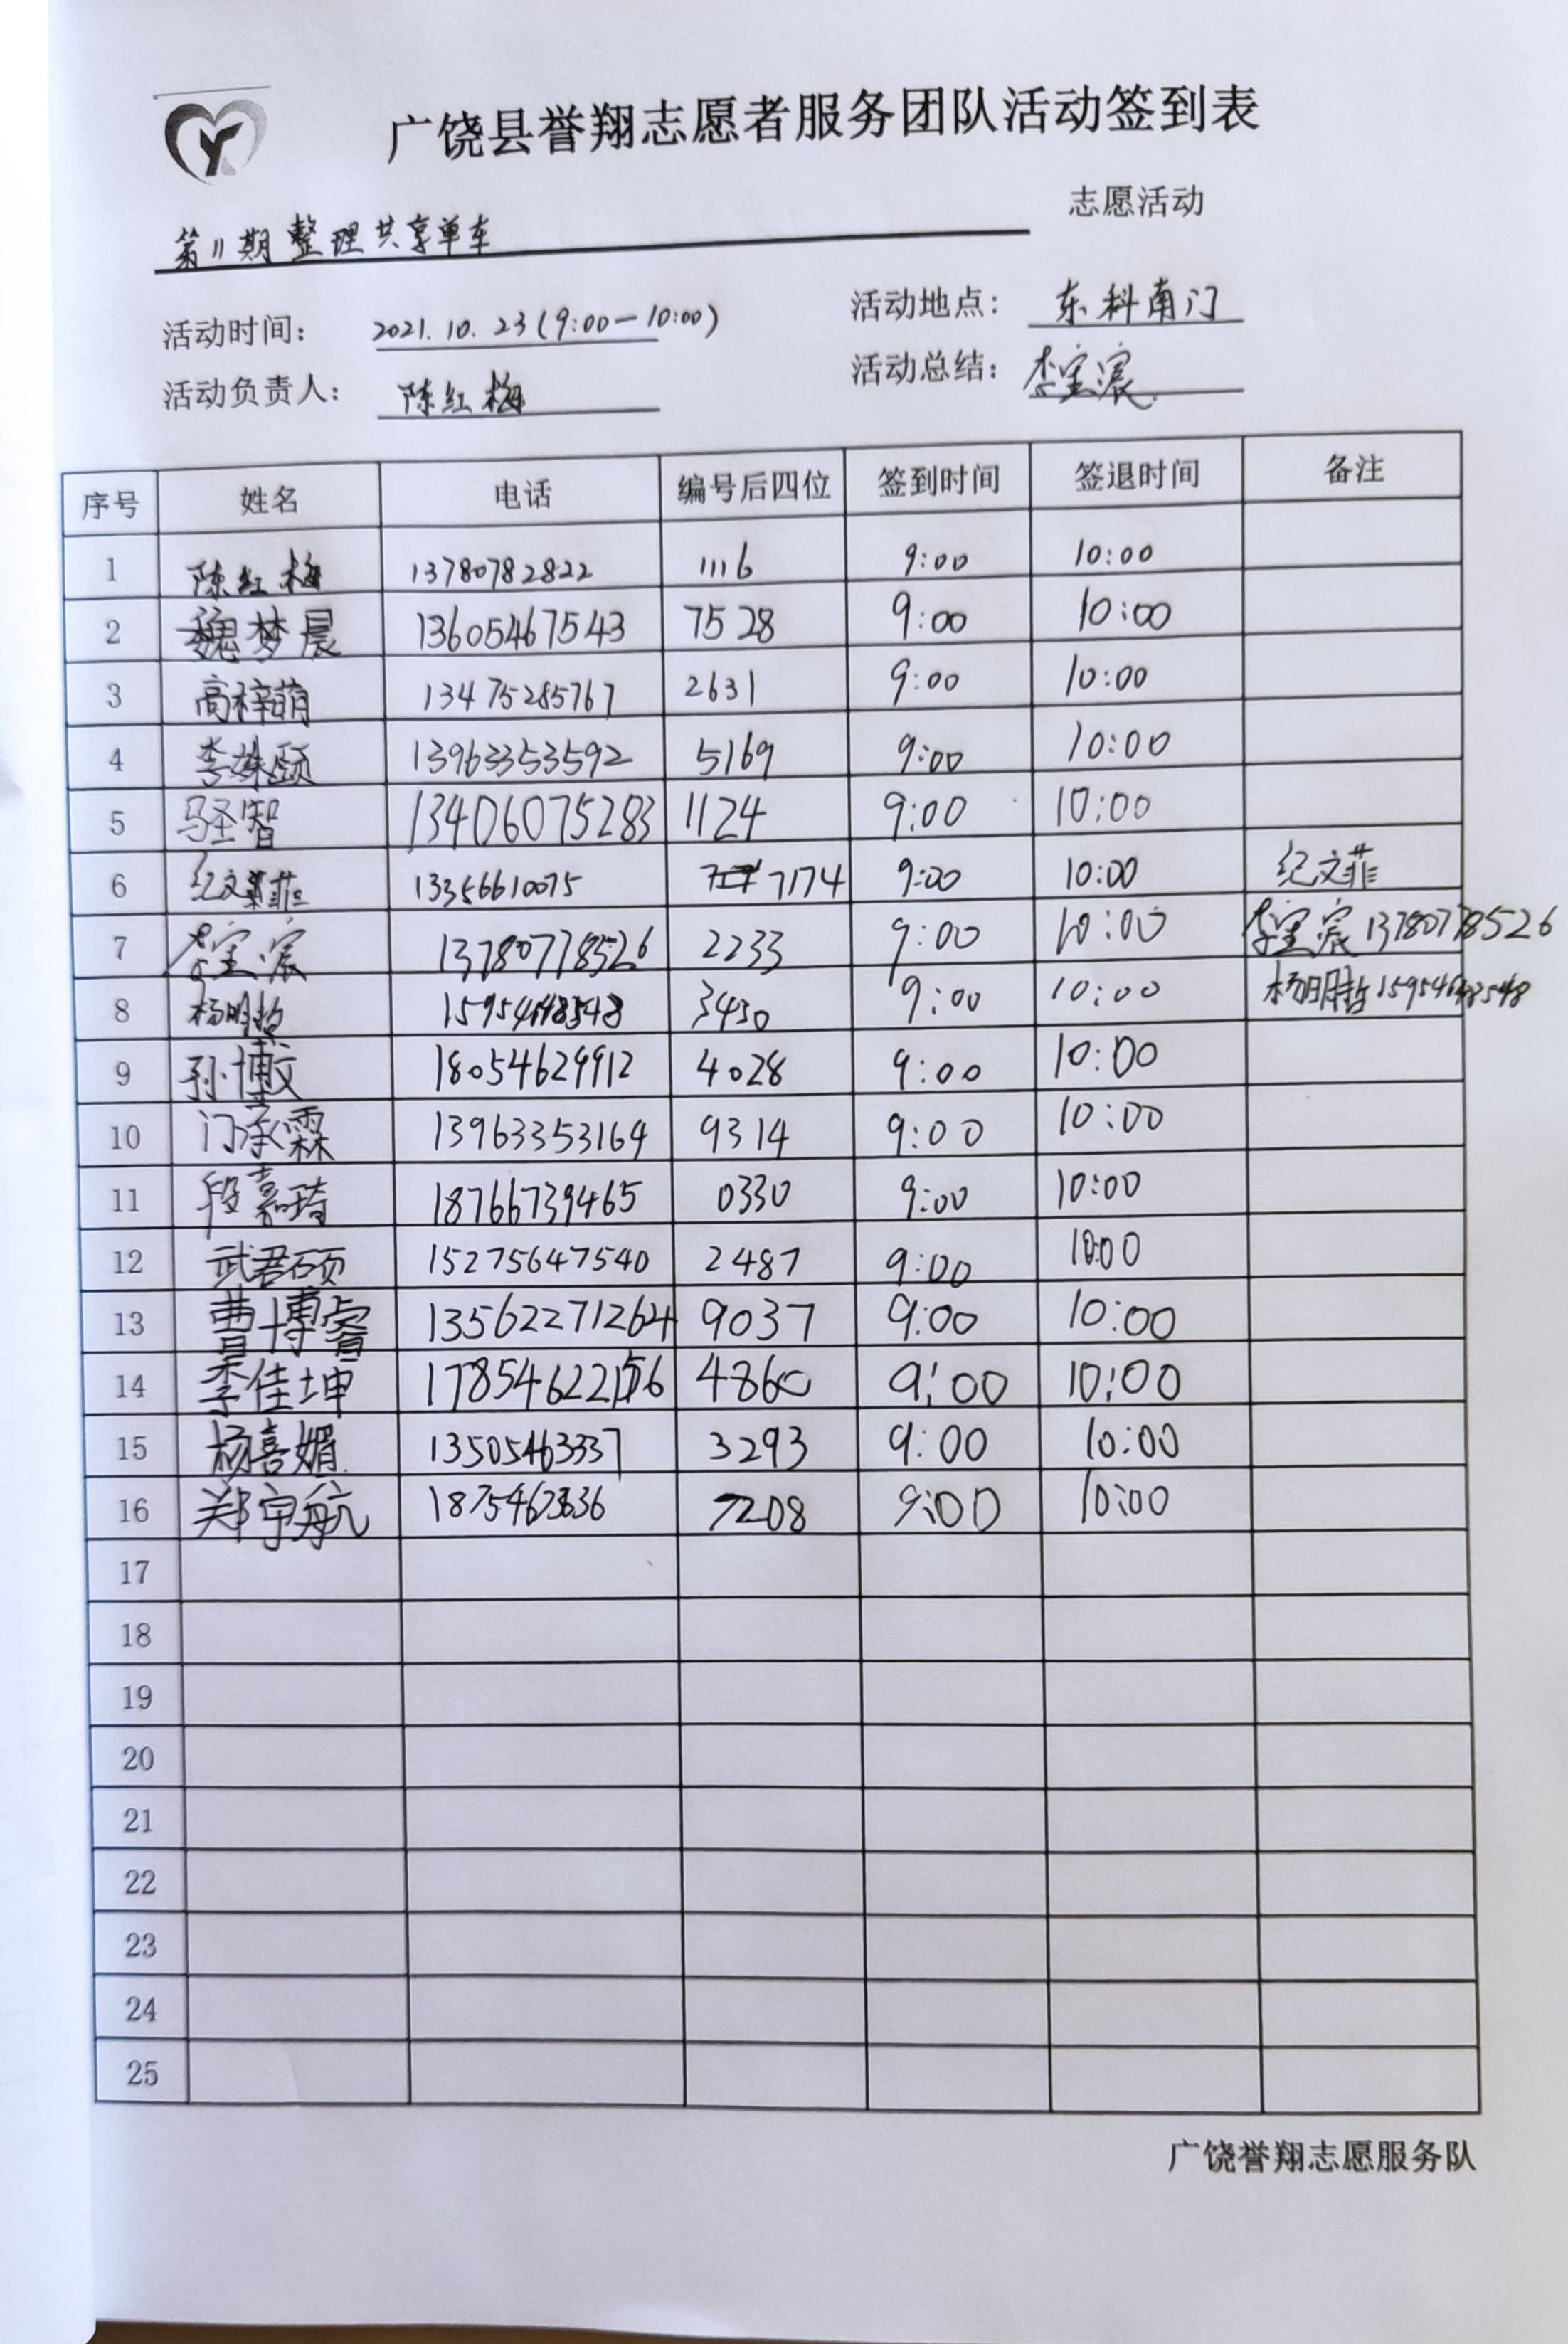 广饶县誉翔志愿者服务团队活动签到表
志愿活动
第11期 整理共享单车
活动时间： 2021.10.23(9:00—10:00) 活动地点： 东科南门
活动负责人： 陈红梅 活动总结： 李宝宸
序号 姓名 电话 编号后四位 签到时间 签退时间 备注
1 陈红梅 13780782822 1116 9:00 10:00
2 魏梦晨 13605467543 7528 9:00 10:00
3 高梓萌 13475285767 2631 9:00 10:00
4 李姝颐 13963353592 5169 9:00 10:00
5 马圣智 13406075283 1124 9:00 10:00
6 纪文菲 13356610075 7174 9:00 10:00 纪文菲
7 李宝宸 13780778526 2233 9:00 10:00 李宝宸 13780778526
8 杨明哲 15954648548 3430 9:00 10:00 杨明哲 15954648548
9 孙博文 18054629912 4028 9:00 10:00
10 门承霖 13963353164 9314 9:00 10:00
11 段嘉琦 18766739465 0330 9:00 10:00
12 武君硕 15275647540 2487 9:00 10:00
13 曹博睿 13562271264 9037 9:00 10:00
14 李佳坤 17854622156 4860 9:00 10:00
15 杨喜媚 13505463337 3293 9:00 10:00
16 郑宇航 7208 9:00 10:00
17
18
19
20
21
22
23
24
25
广饶誉翔志愿服务队